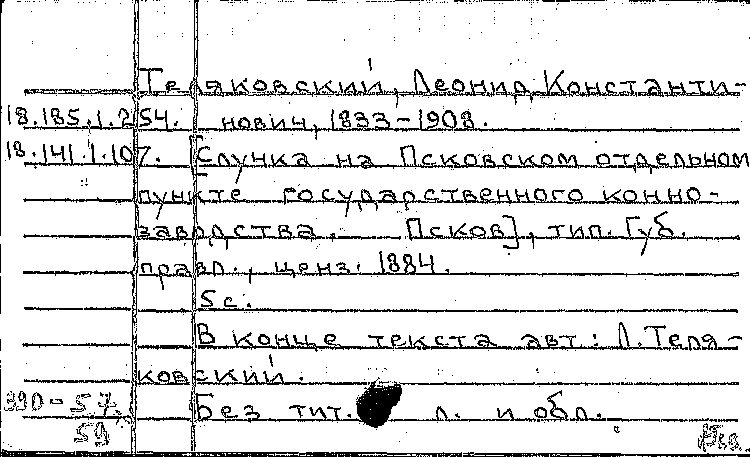 Теляковский, Леонид Константи-
18.185.1.254. нович, 1833-1908.
18.141.1.107. [Случка на Псковском отдельном
пункте государственного конно-
заводства. Псков], тип. Губ.
правл., ценз. 1884.
5 с.
В конце текста авт.: Л. Теля-
ковский.
390-57. Без тит. л. и обл.
59